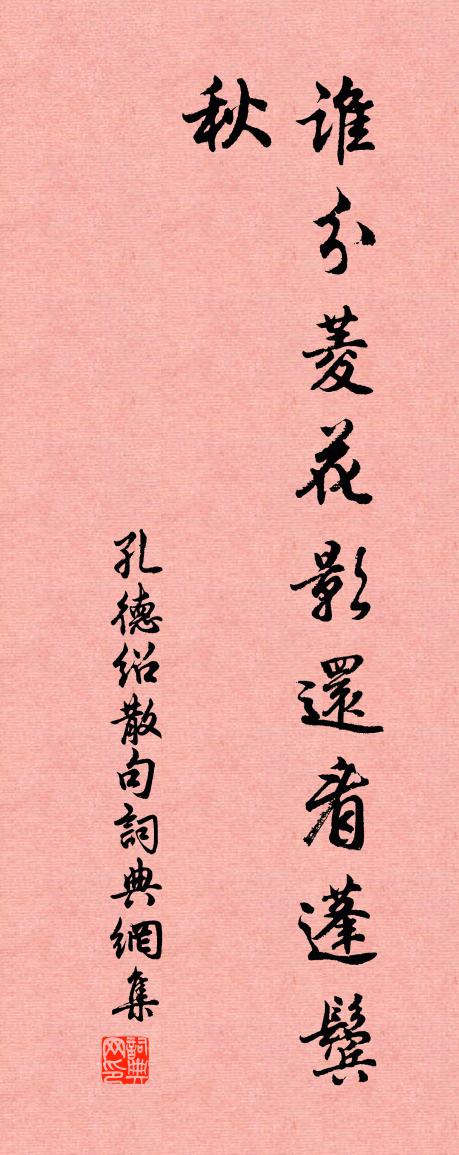 誰分菱花影還看蓬鬢
秋
孔德紹散句詞典網集
詞典网印